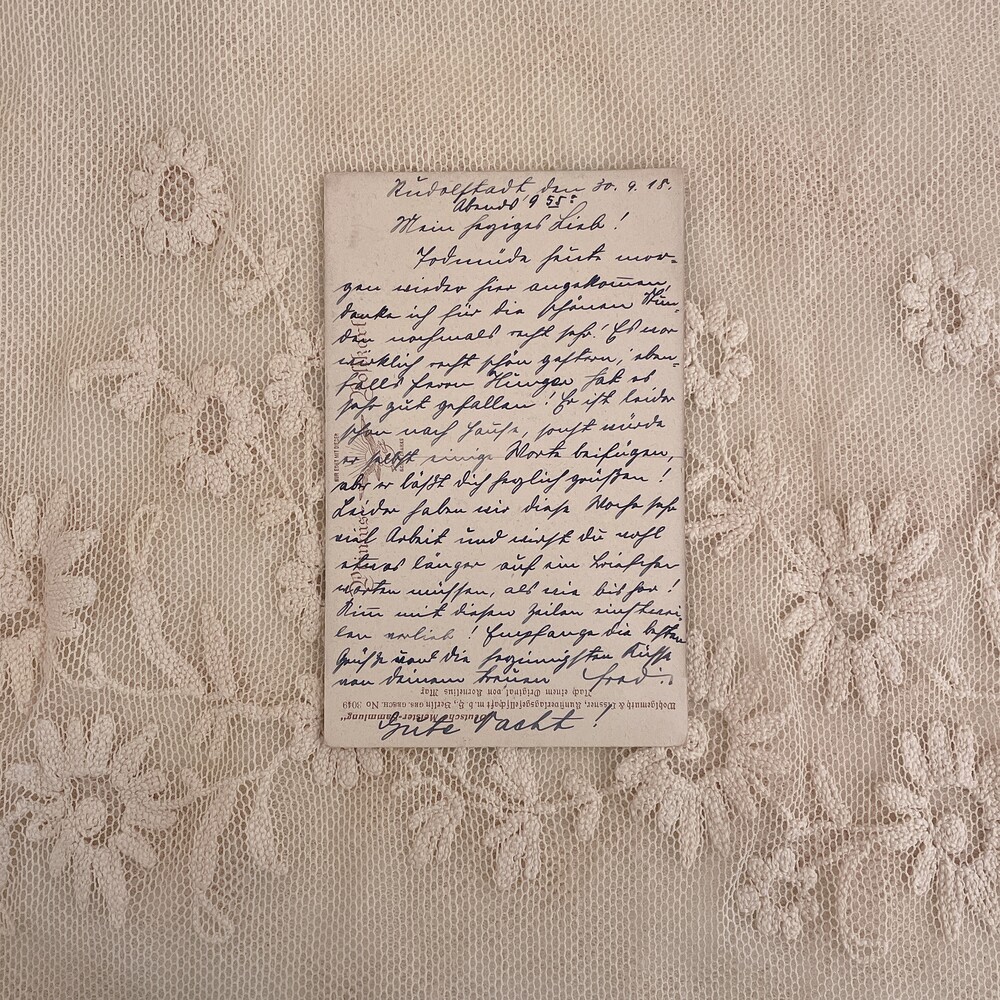 Rudolstadt, den 30. 9. 18.
Abends 9 55:
Mein herziges Lieb!
Todmüde heute mor-
gen wieder hier angekommen,
danke ich für die schönen Stun-
den nochmals recht sehr! Es war
wirklich recht schön gestern; eben-
falls Herrn Hat es
sehr gut gefallen! Er ist leider
schon nach Hause, sonst würde
er selbst einige Worte beifügen,
aber er läßt Dich herzlich grüßen!
Leider haben wir diese Woche sehr
viel Arbeit und wirst Du wohl
etwas länger auf ein Briefchen
warten müssen, als wie bisher!
Nim mit diesen Zeilen einstwei-
len vorlieb! Empfange die besten
Grüße und die herzinnigsten Küsse
von Deinem treuen Fred.
Gute Nacht!
"Deutsche Meister-Sammlung"
Wohlgemuth & Lissner, Kunstverlagsgesellschaft m. b. H., Berlin. GES. GESCH. No 3049
Nach einem Original von Kornelius Mar